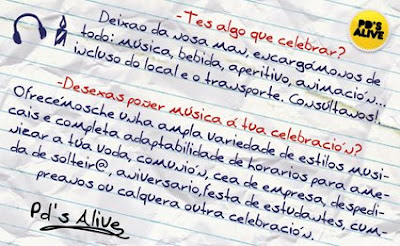 -Tes algo que celebrar?
PD'S
ALIVE
Deixao da nosa man, encargámonos de
todo: música, bebida, aperitivo, animación...
incluso do local e o transporte. Consúltanos!
-Desexas poñer música á tua celebración?
Ofrecémosche unha ampla variedade de estilos musi-
cais e completa adaptabilidade de horarios para ame-
nizar a tua voda, comunión, cea de empresa, despedi-
da de solteir@, aniversario, festa de estudantes, cum-
preanos ou calquera outra celebración.
Pd's Alive